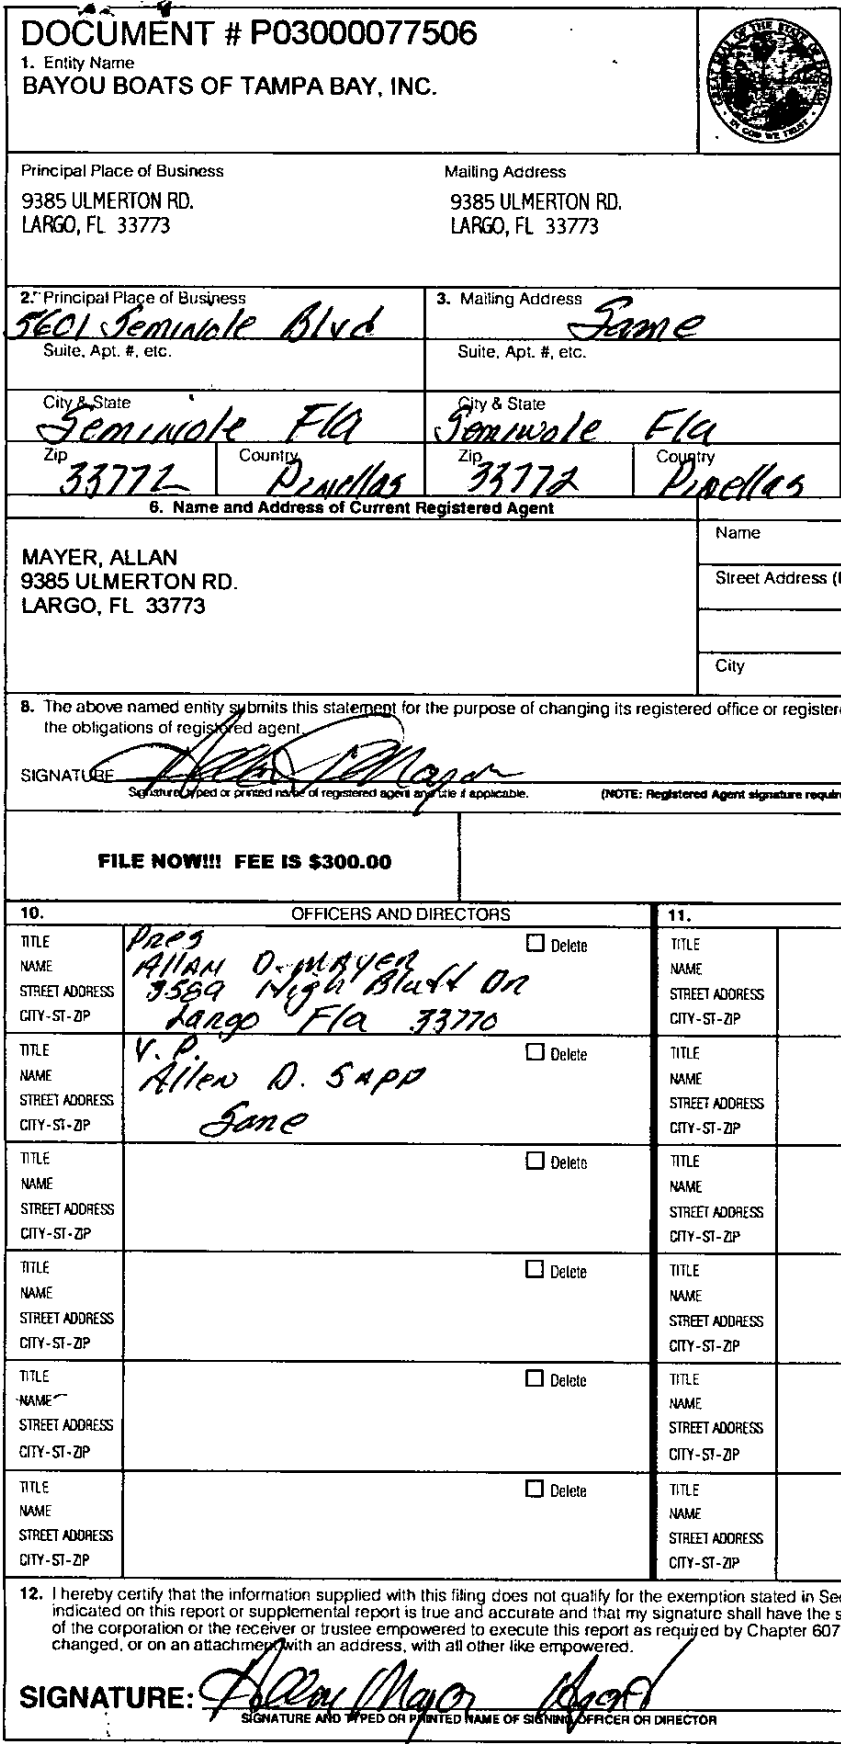 DOCUMENT # P03000077506
1. Entity Name
BAYOU BOATS OF TAMPA BAY, INC.
GREAT SEAL OF THE STATE OF FLORIDA
IN GOD WE TRUST
Principal Place of Business
Mailing Address
9385 ULMERTON RD.
LARGO, FL 33773
9385 ULMERTON RD.
LARGO, FL 33773
2. Principal Place of Business
5601 Seminole Blvd
3. Mailing Address
Same
Suite, Apt. #, etc.
Suite, Apt. #, etc.
City & State
Seminole Fla
City & State
Seminole Fla
Zip
33772
Country
Pinellas
Zip
33772
Country
Pinellas
6. Name and Address of Current Registered Agent
MAYER, ALLAN
9385 ULMERTON RD.
LARGO, FL 33773
Name
Street Address (
City
8. The above named entity submits this statement for the purpose of changing its registered office or register
the obligations of registered agent.
SIGNATURE
Signature, typed or printed name of registered agent and title if applicable.
(NOTE: Registered Agent signature requir
FILE NOW!!! FEE IS $300.00
10. OFFICERS AND DIRECTORS
11.
TITLE Pres Delete
NAME Allan D. Mayer
STREET ADDRESS 3589 High Bluff Dr
CITY-ST-ZIP Largo Fla 33770
TITLE
NAME
STREET ADDRESS
CITY-ST-ZIP
TITLE V. P. Delete
NAME Allen D. Sapp
STREET ADDRESS
CITY-ST-ZIP Same
TITLE
NAME
STREET ADDRESS
CITY-ST-ZIP
TITLE Delete
NAME
STREET ADDRESS
CITY-ST-ZIP
TITLE
NAME
STREET ADDRESS
CITY-ST-ZIP
TITLE Delete
NAME
STREET ADDRESS
CITY-ST-ZIP
TITLE
NAME
STREET ADDRESS
CITY-ST-ZIP
TITLE Delete
NAME
STREET ADDRESS
CITY-ST-ZIP
TITLE
NAME
STREET ADDRESS
CITY-ST-ZIP
TITLE Delete
NAME
STREET ADDRESS
CITY-ST-ZIP
TITLE
NAME
STREET ADDRESS
CITY-ST-ZIP
12. I hereby certify that the information supplied with this filing does not qualify for the exemption stated in Se
indicated on this report or supplemental report is true and accurate and that my signature shall have the s
of the corporation or the receiver or trustee empowered to execute this report as required by Chapter 607
changed, or on an attachment with an address, with all other like empowered.
SIGNATURE:
SIGNATURE AND TYPED OR PRINTED NAME OF SIGNING OFFICER OR DIRECTOR